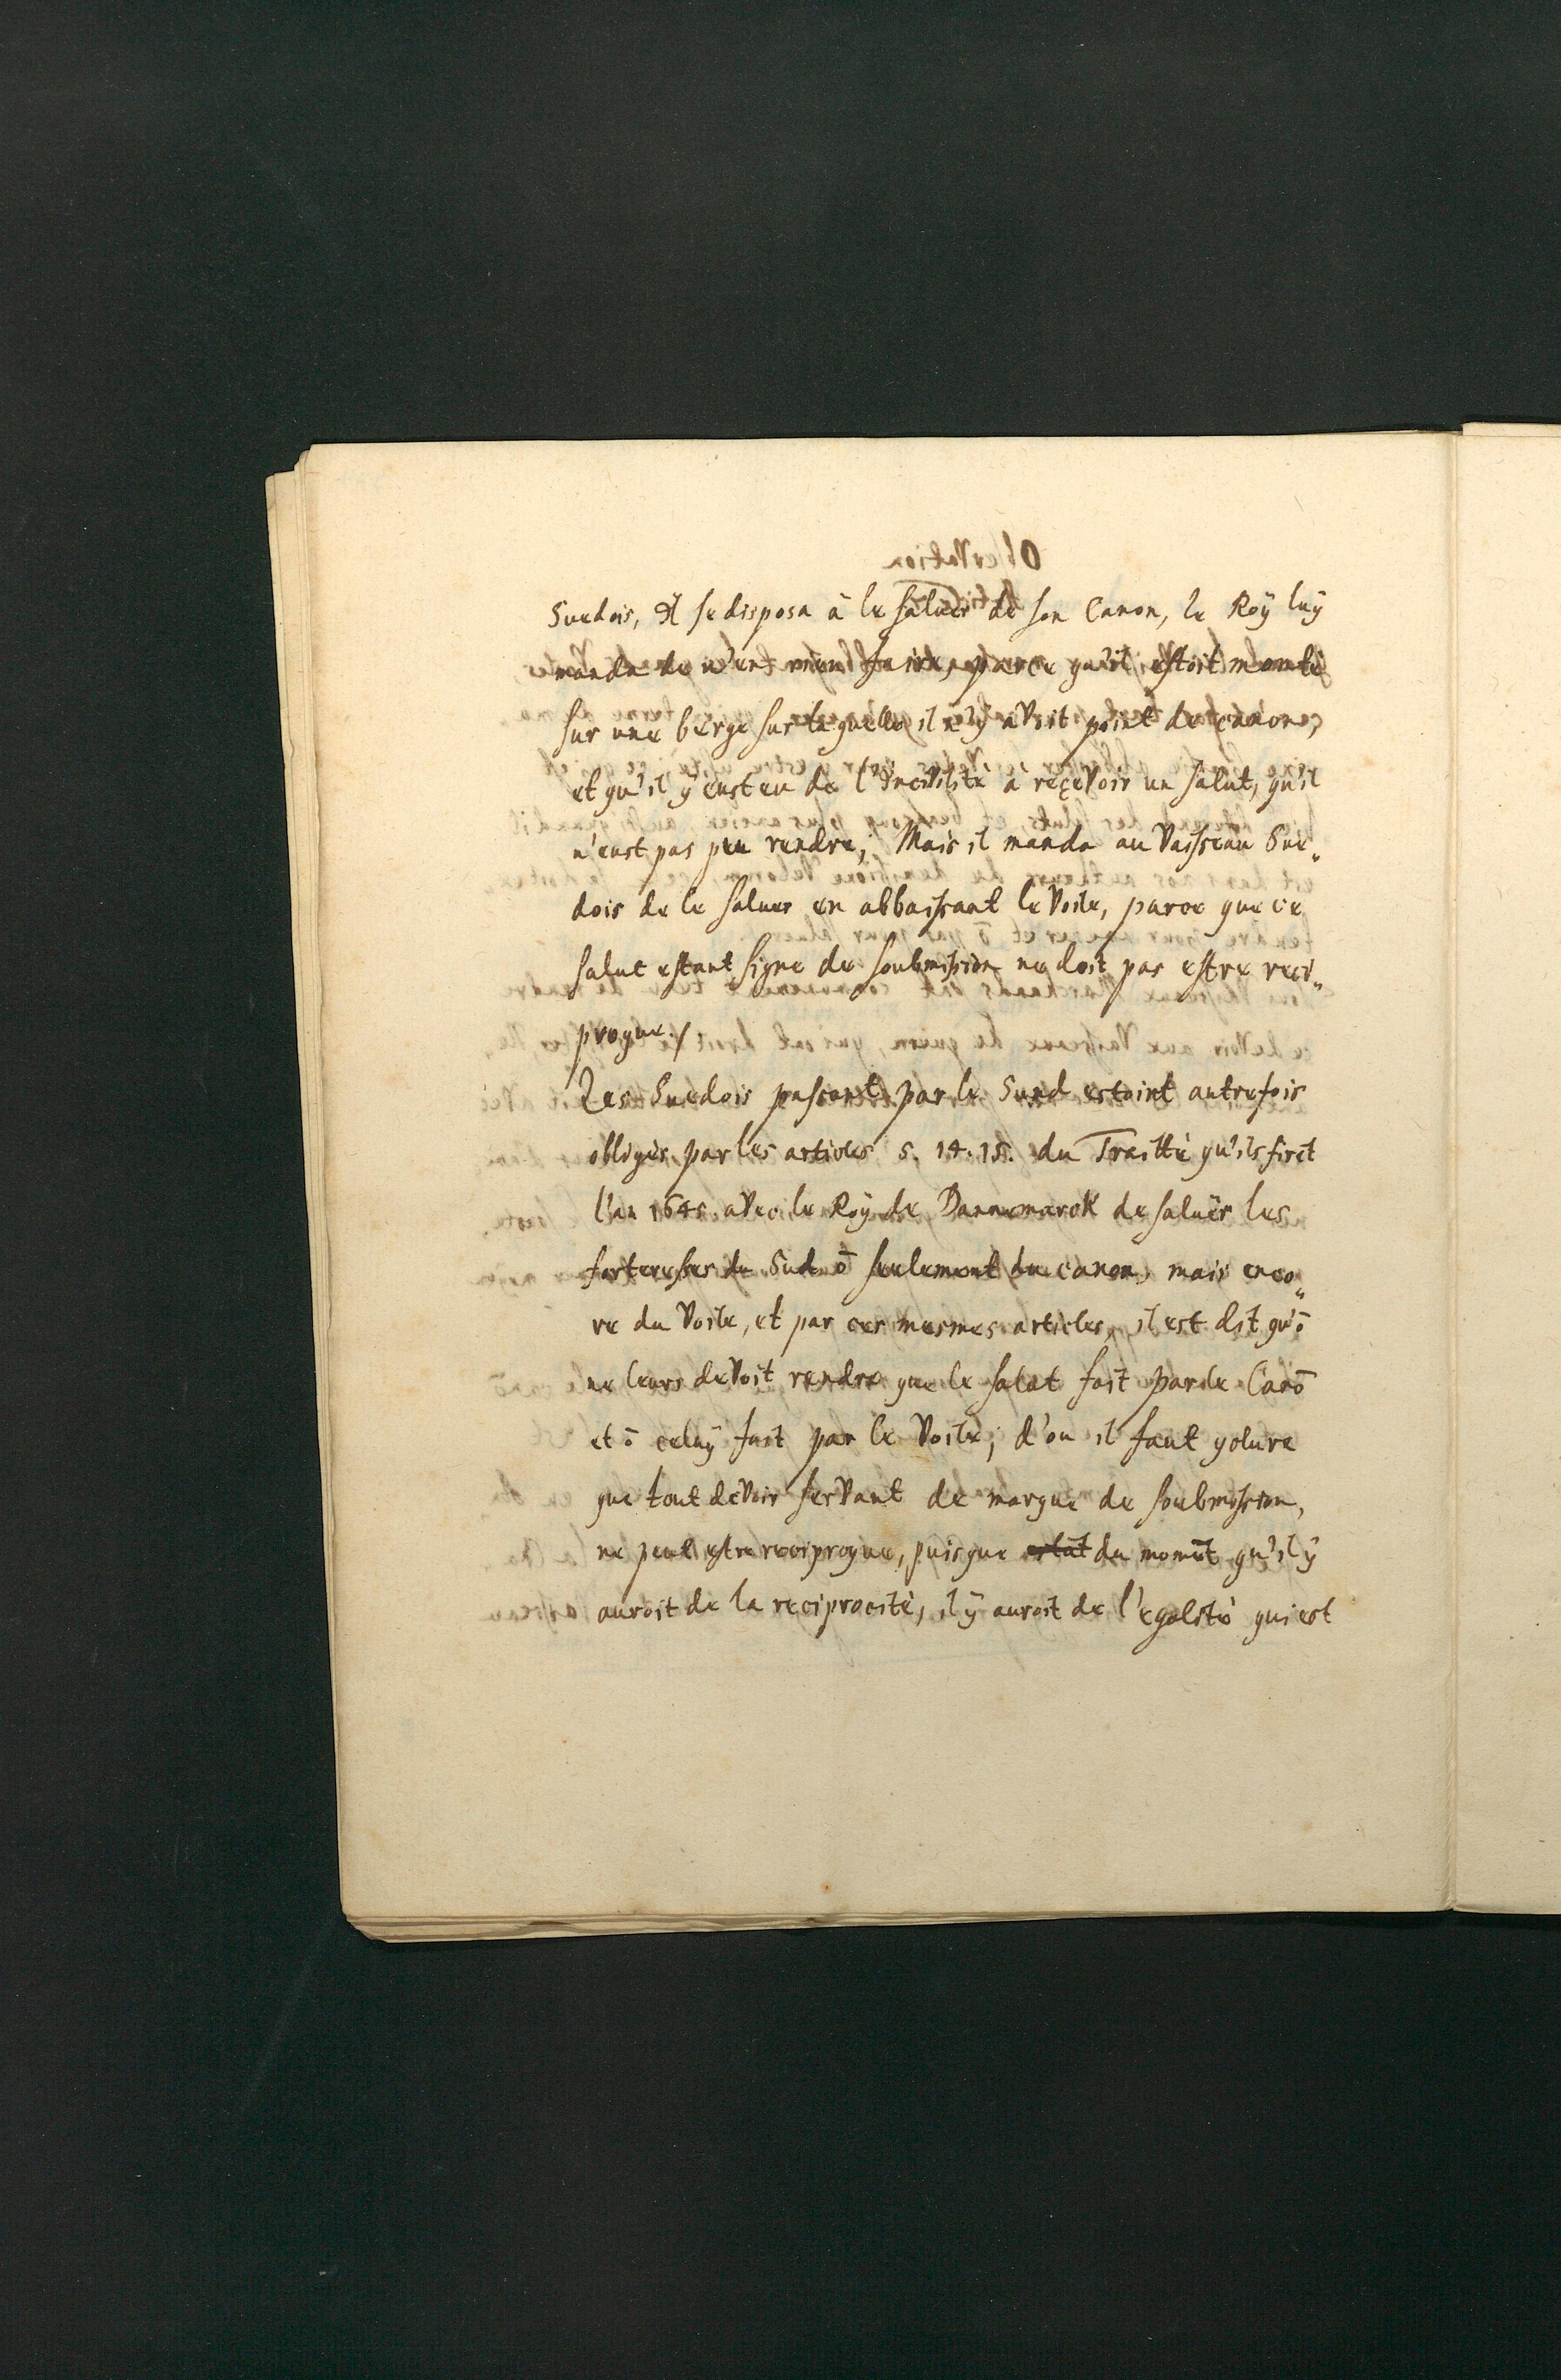 Suedois, Il se disposa à le saluer de son Canon, le Roÿ luÿ
manda de n'en rien faire, parce qu'il estoit monté
sur une berge sur laquelle il n'ÿ aVoit point de canons,
et qu'il ÿ eust eu de l'Incivilité à reçeVoir un salut, qu'il
n'eust pas peu rendre; Mais il manda au Vaisseau Sue„
dois de le saluer en abbaissant le Voile, parce que ce
salut estant signe de soubmission ne doit pas estre reci„
proque./
Les Suedois passant par le Sund estoint autrefois
obligés par les articles 5. 14. 15. du Traitté qu'ils firēt
l'an 1645 aVec le Roÿ de Dannemarck de saluër les
forteresses du Sud ō seulement du canon, mais enco„
re du Voile, et par ces mesmes articles, il est dit qu'ō
ne leurs deVoit rendre que le salut fait par le Canō
et ō celuÿ fait par le Voile; d'ou il faut ꝯclure
que tout deVoir serVant de marque de soubmission,
ne peut estre reciproque, puisque estāt du momēt qu'il ÿ
auroit de la reciprocité, il ÿ auroit de l'egalité qui est